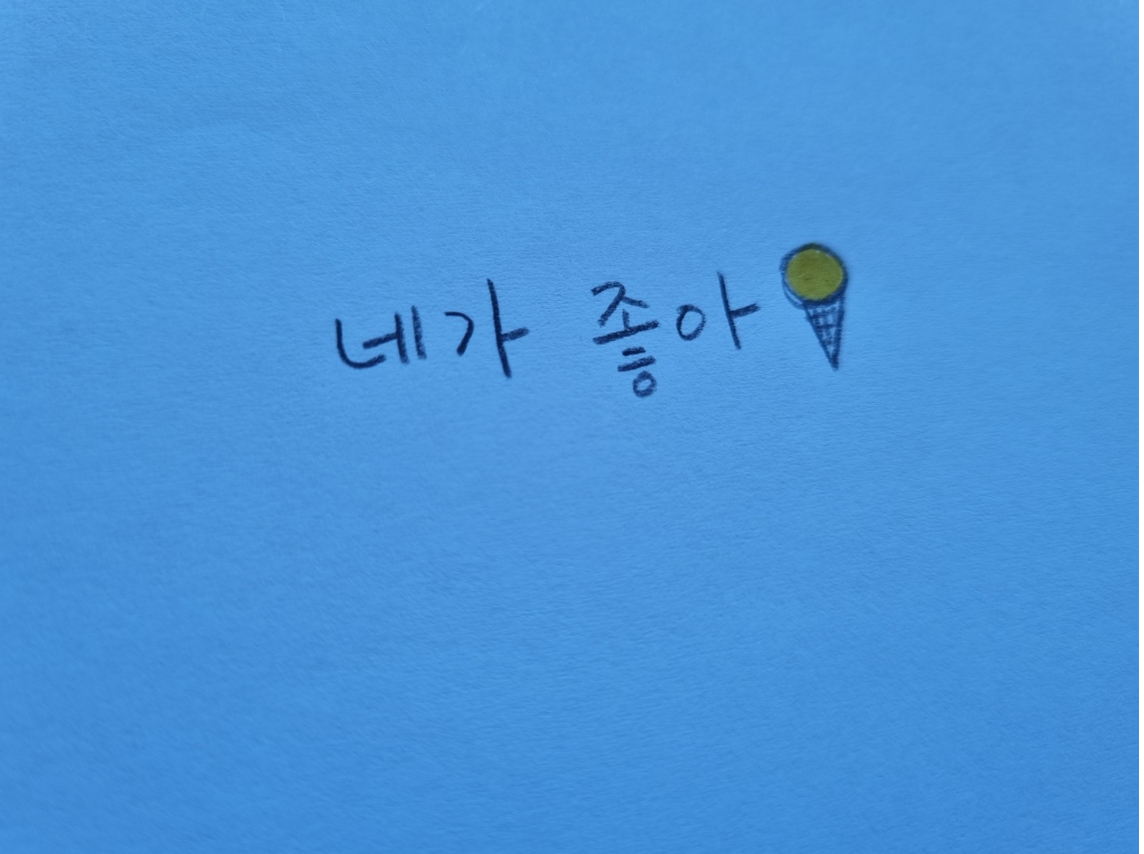 네가 좋아